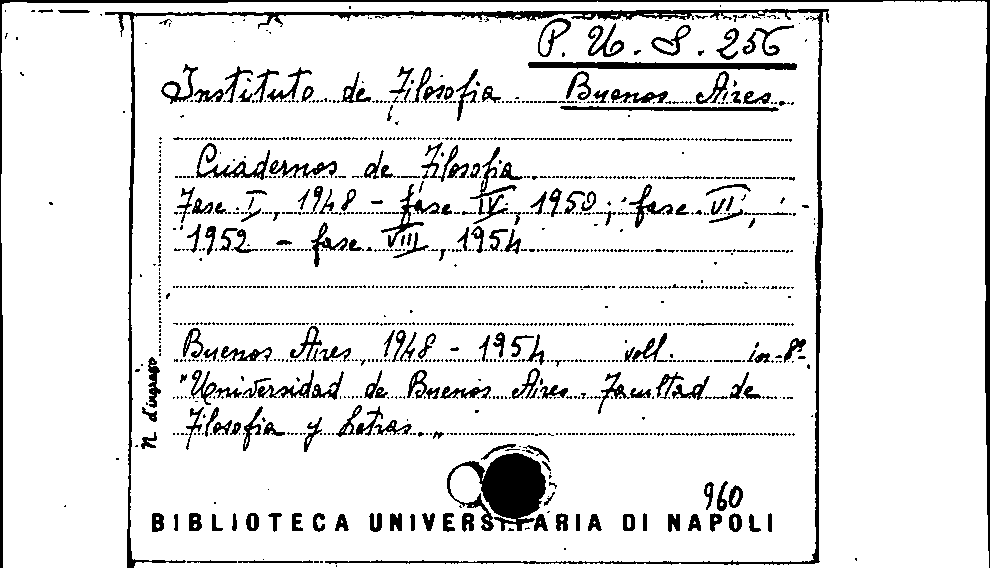 P. U. S. 256
Instituto de Filosofia. Buenos Aires.
Cuadernos de Filosofia.
Fasc. I, 1948 - fasc. IV, 1950; fasc. VI,
1952 - fasc. VIII, 1954
Buenos Aires, 1948 - 1954, voll. in-8º
"Universidad de Buenos Aires. Facultad de
Filosofia y Letras."
N. d'ingresso
960
BIBLIOTECA UNIVERSITARIA DI NAPOLI